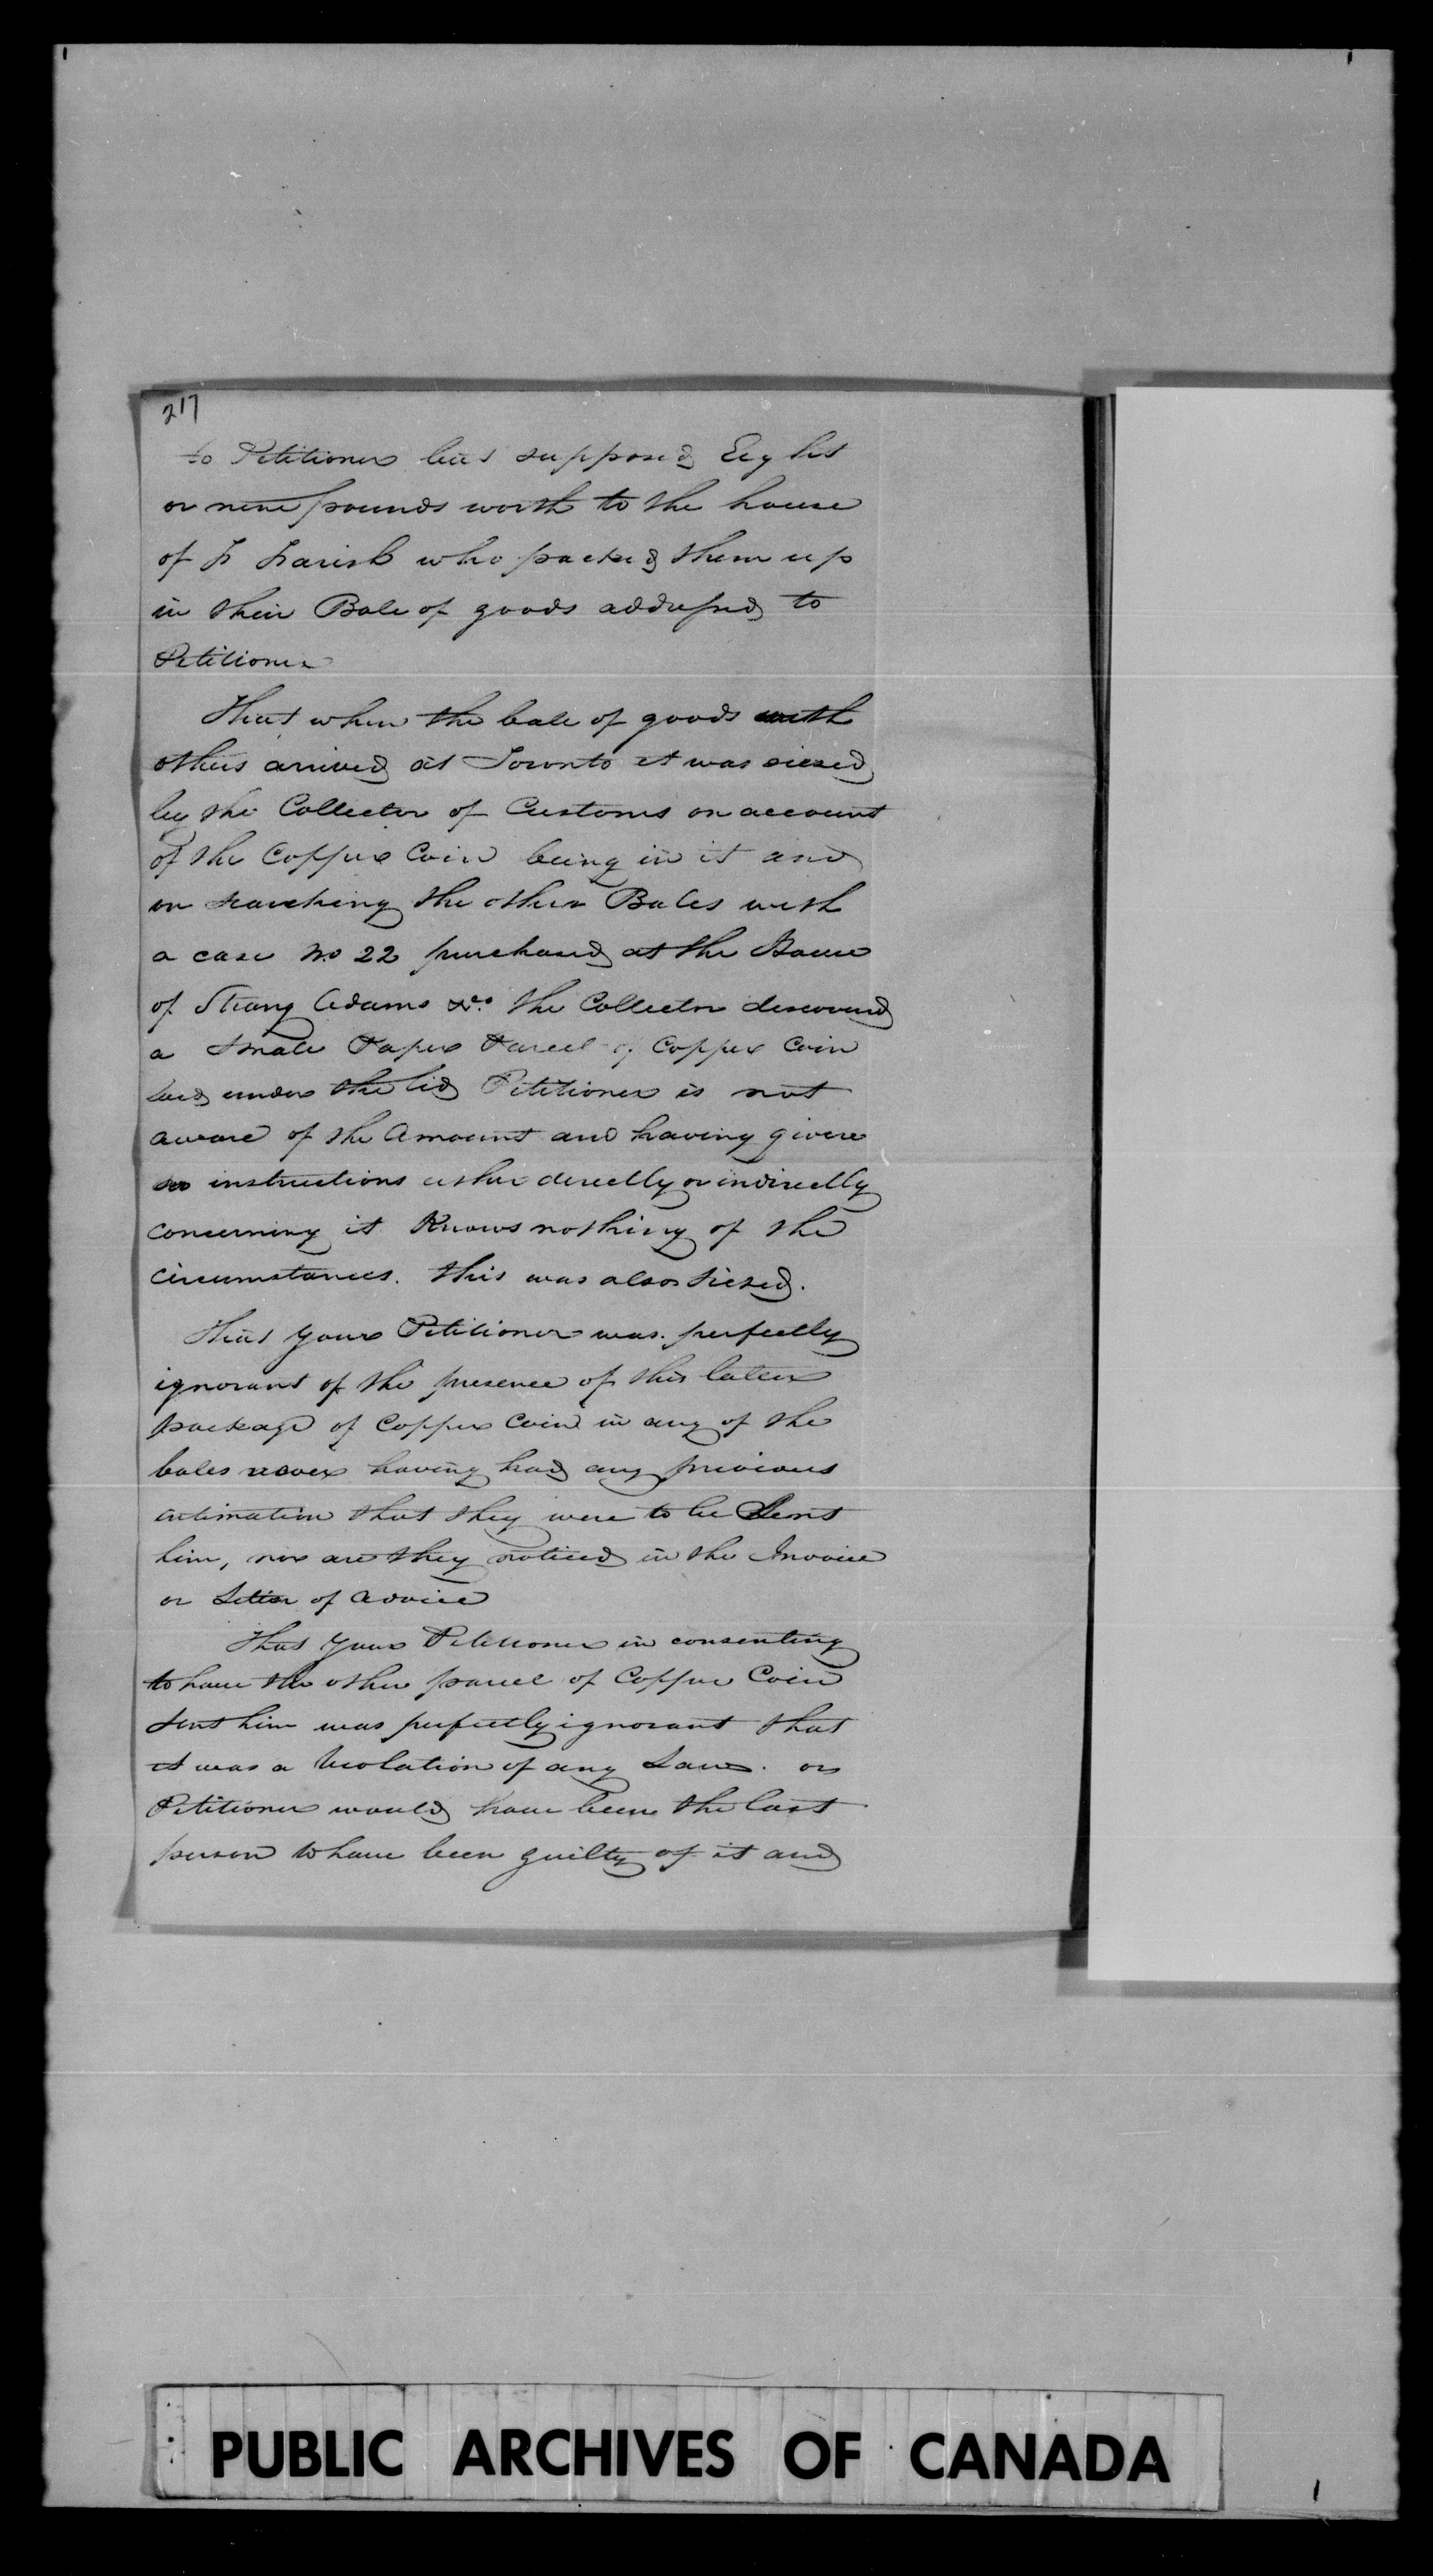 217
to Petitioner but supposed Eight
or nine pounds worth to the house
of who packed them up
in their Bale of goods addressed to
Petitioner
That when the bale of goods with
others arrived at Toronto it was siezed
by the Collector of Customs on account
of the Copper Coin being in it and
on searching the other Bales with
a case No 22 purchased at the House
of Strang Adams &Co. the Collector discovered
a Small Paper Parcel of Copper Coin
laid under the lid Petitioner is not
aware of the Amount and having given
no instructions either directly or indirectly
concerning it Knows nothing of the
circumstances. this was also siezed.
That your Petitioner was perfectly
ignorant of the presence of this latter
package of Copper Coin in any of the
bales never having had any previous
intimation that they were to be Sent
him, nor are they noticed in the Invoice
or Letter of advice
That your Petitioner in consenting
to have the other parcel of Copper Coin
sent him was perfectly ignorant that
it was a Violation of any Law. or
Petitioner would have been the last
person to have been guilty of it and
PUBLIC ARCHIVES OF CANADA